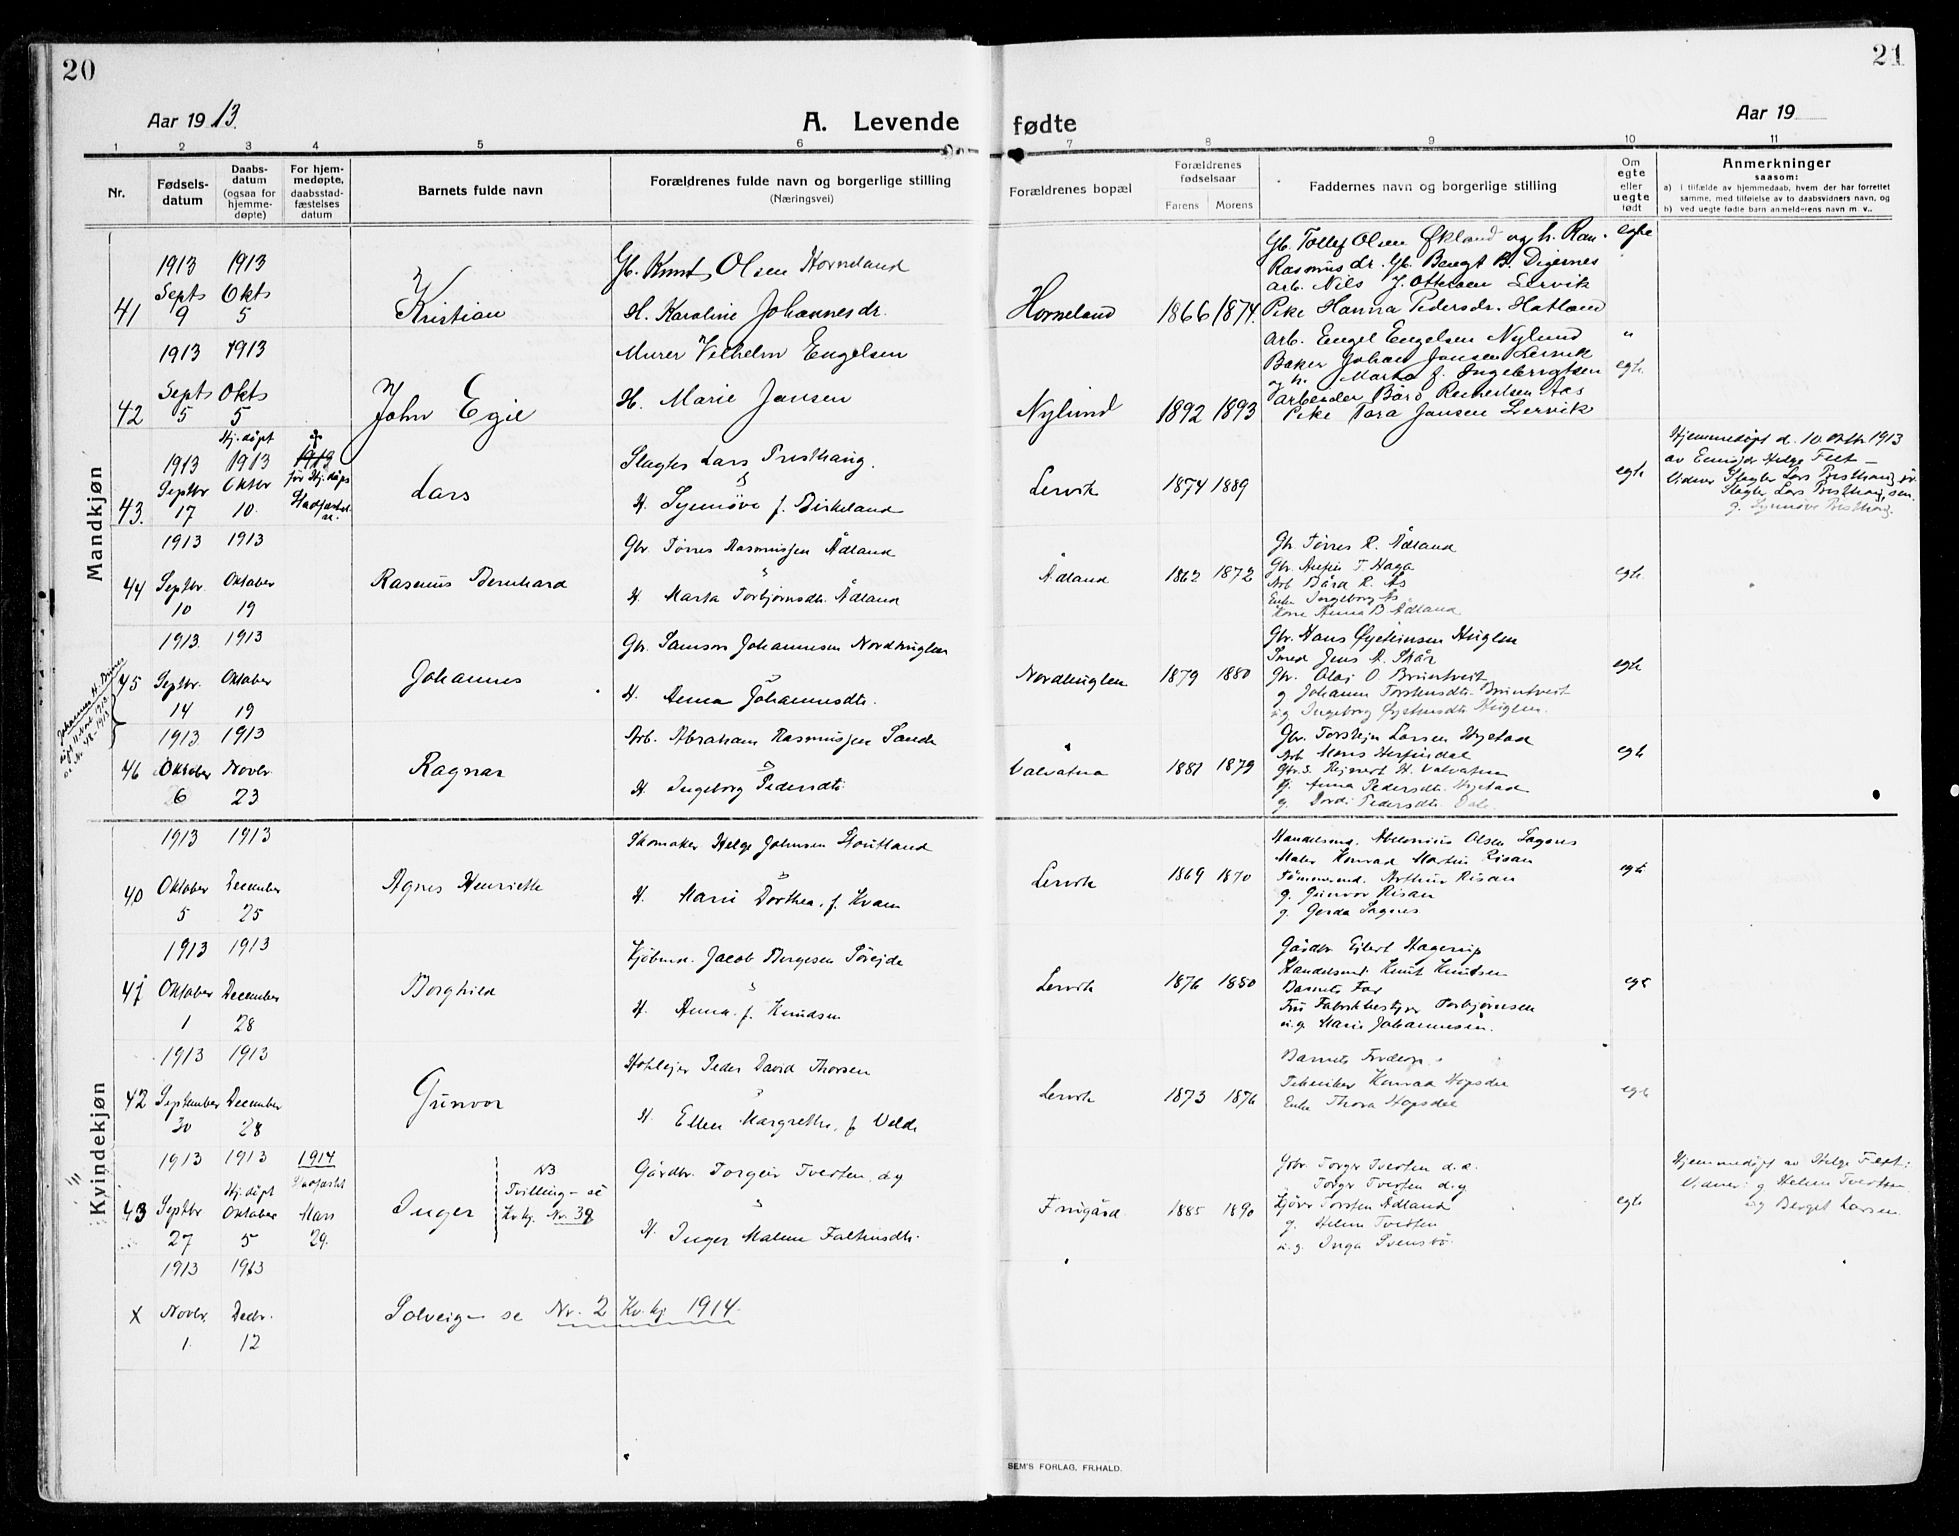 20
21
Aar 1913.
A. Levende
fødte
Aar 19
1 2 3 4 5 6 7 8 9 10 11
Nr.
Fødsels-
datum
Daabs-
datum
(ogsaa for
hjemme-
døpte)
For hjem-
medøpte,
daabsstad-
fæstelses
datum
Barnets fulde navn
Forældrenes fulde navn og borgerlige stilling
(Næringsvei)
Forældrenes bopæl
Forældrenes
fødselsaar
Farens Morens
Faddernes navn og borgerlige stilling
Om
egte
eller
uegte
født
Anmerkninger
saasom:
a) i tilfælde av hjemmedaab, hvem der har forrettet
samme, med tilføielse av to daabsvidners navn, og
b) ved uegte fødte barn anmelderens navn m. v.
Mandkjøn
41
1913 1913
Septs Okts
9 5
Kristian
Gb. Knut Olsen Horneland
H. Karoline Johannesdr.
Horneland 1866 1874.
Gb. Tollef Olsen Økland og h. Ran.
Rasmusdr. Gb. Bengt B. Digernes
arb. Nils J. Ottesen Lervik
Pike Hanna Pedersdr. Hatland
egte
42
1913 1913
Septs Okts
5 5
John Egil
Murer Vilhelm Engelsen
H. Marie Jansen
Nylund 1892 1893
Arb. Engel Engelsen Nylund
Baker Johan Jansen Lervik
og h. Marta f. Ingebrigtsen
Arbeider Bård Reinertsen Aas
Pike Tora Jansen Lervik
"
egte
43.
Hj. døpt
1913 1913 1913
Septbr Oktbr
17 10.
før Hj.døps
Lars
Slagter Lars Presthaug.
H. Synnøve f. Birkeland
Lervik 1874 1889
egte
Hjemmedøpt d. 10 oktbr 1913
av Helge Fett
Vidner Slagter Lars Presthaug
Slagter Lars Presthaug, sen.
g. Synnøve Presthaug.
44
1913 1913
Septbr Oktober
10 19
Rasmus Bernhard
Gbr Tørres Rasmussen Ådland
H. Marta Torbjørnsdtr. Ådland
Ådland 1862 1872
Gb Tørres R. Ådland
Gbr T. Haga
Arb Bård R. Ås
Enke Ingeborg Ås
Anna B Ådland
egte
45
1913. 1913
Septbr. Oktober
14 19
Johannes
Gbr. Samson Johannessen Nordhuglen
H. Anna Johannesdtr.
Nordhuglen 1879 1880
Gbr. Hans Øysteinsen Huglen
Smed Jens A. Skår
Gbr. Olai O Bruntveit
g Johanna Torstensdtr. Bruntveit
u.g Ingeborg Øystensdtr Huglen.
egte
Johannes H.
se Nr 48-1913
46
1913. 1913
Oktober Novbr.
6 23
Ragnar
Arb. Abraham Rasmussen Sande
H. Ingeborg Pedersdtr.
Valvatna 1881 1879
Gbr. Torstein Larsen Hystad
Arb Hans Herfindal
Gbr.s. Reinert H. Valvatna
Pj. Anna Pedersdtr. Hystad
g. Dordi Pedersdtr. Dale.
egte
Kvindekjøn
40
1913 1913
Oktober December
5 25
Agnes Henriette
Skomaker Helge Johnsen Stoutland
H. Marie Dorthea, f. Kvam
Lervik 1869 1870
Handelsmd. Abelonius Olsen Sagnes
Maler Konrad Martin Risan
Tømmermd. Arthur Risan
g. Gunvor Risan
g. Gerda Sagnes
egte
41
1913 1913
Oktober December
1 28
Borghild
Kjøbmd. Jacob Børgesen Sørejde
H. Anna f. Knudsen
Lervik 1876 1880
Gårdbr Ejlert Hagerup
Handelsmd. Knut Knutsen
Barnets Far
Fru Fabrikbestyrer Torbjørnsen
u.g. Marie Johannesen.
egte
42
1913 1913
September December
30 28
Gunvor
Hotelejer Peder David Thorsen
H. Ellen Margrethe, f Velde
Lervik 1873 1876
Barnets Forældre
Tekniker Konrad Hopsdal
Enke Thora Hopsdal
egte
43
1913 1913 1914
Hj. døpt Stadfæstet
Septbr Oktober Mars
27 5 29.
Inger
NB
Tvilling - se
Kvkj. Nr. 39
Gårdbr. Torgeir Tveiten, og
H. Inger Malene Faltinsdtr.
Frugård. 1885 1890
Gbr. Torger Tveiten d.e.
Torger Tveiten d.y
Torsten Ådland
g. Helene Tveiten
u.g. Inga Svensbø.
egte
Hjemmedøpt av Helge Fett;
Vidner: g Helene Tveiten
og Berget Larsen
x
1913 1913
Novbr. Decbr.
1 12
Solveig - se Nr. 2 Kv. kj 1914.
SEM'S FORLAG, FR.HALD.